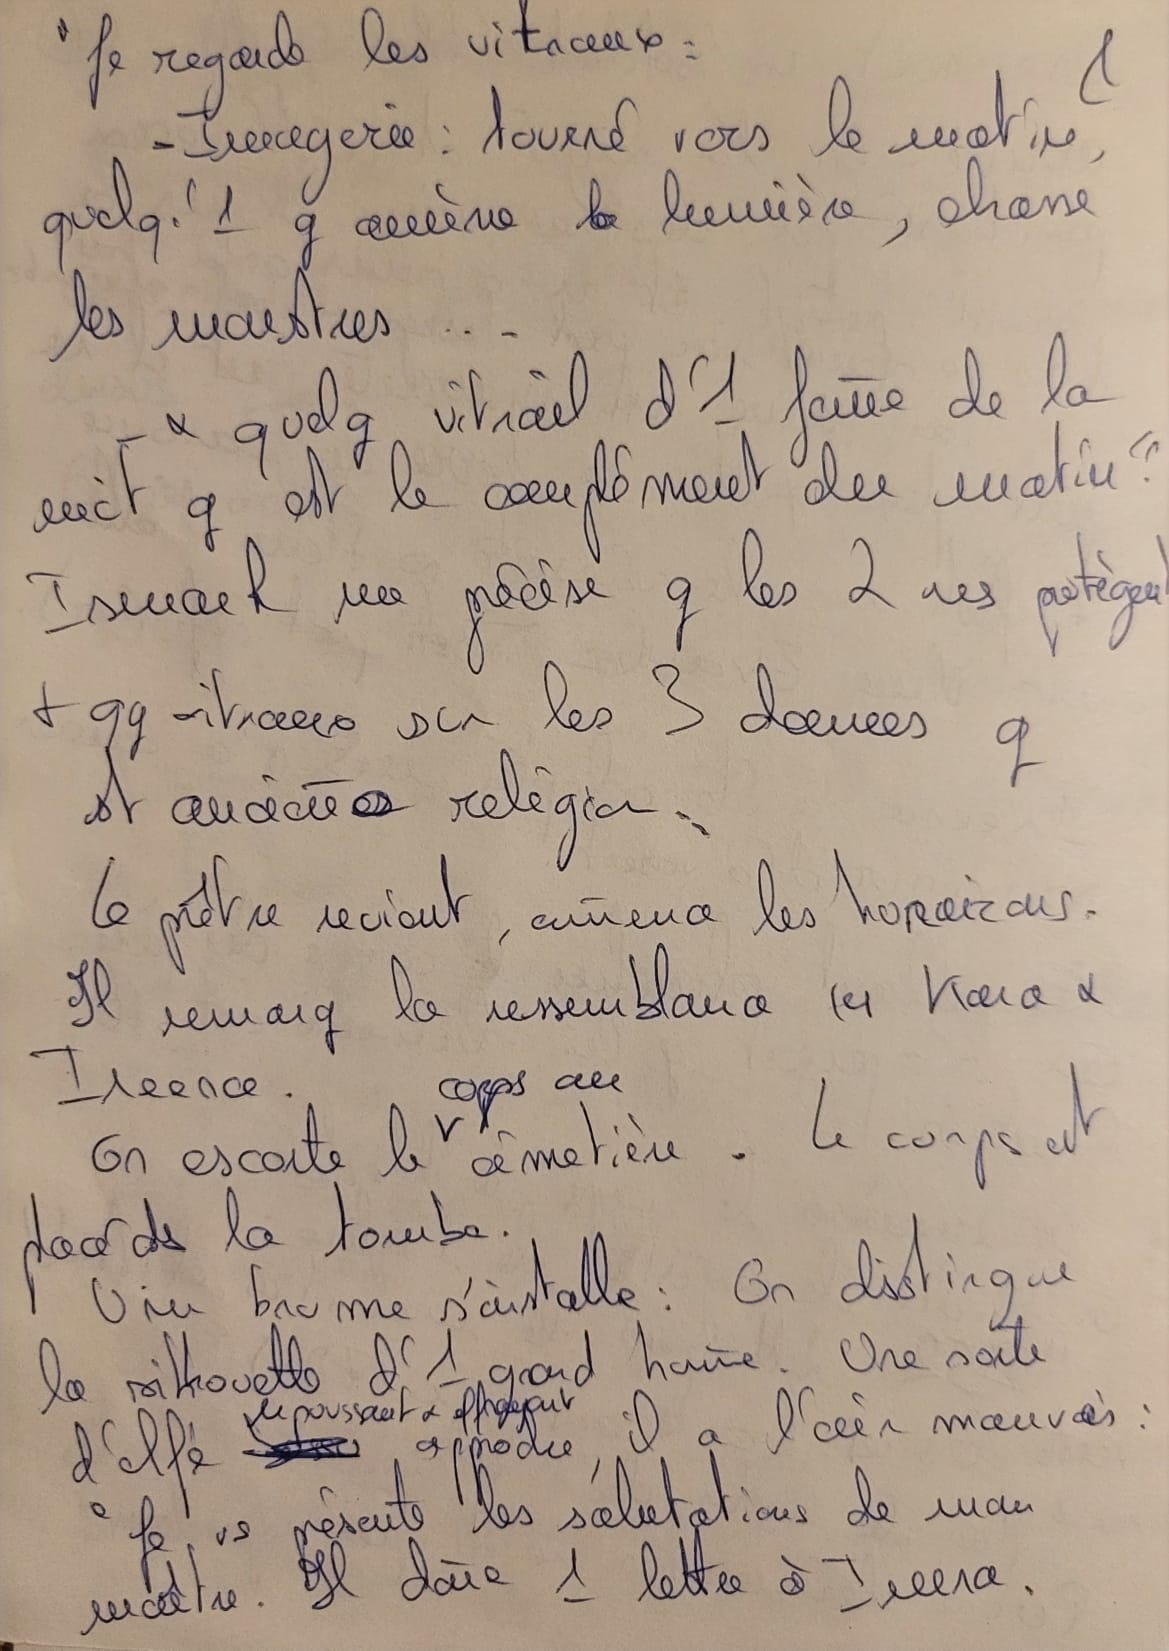 " Je regarde les vitraux :
- Imagerie : tourné vers le matin,
quelq.' 1 q amène la lumière, chasse
les monstres ...
- & quelq vitrail d'1 femme de la
nuit q est le complément du matin"
Ismark me précise q les 2 ns protègent
+ qq vitraux sur les 3 dames q
st religion.
Le prêtre revient, amène les
Il remarq la ressemblance Kara &
Ireena.
corps au
On escorte le cimetière. Le corps est
placé ds la tombe.
Une brume s'installe : On distingue
la silhouette d'1 grand homme. Une sorte
repoussant & effrayant
d'elfe approche, il a l'air mauvais :
" Je vs présente les salutations de mon
maître. Il donne 1 lettre à Ireena.